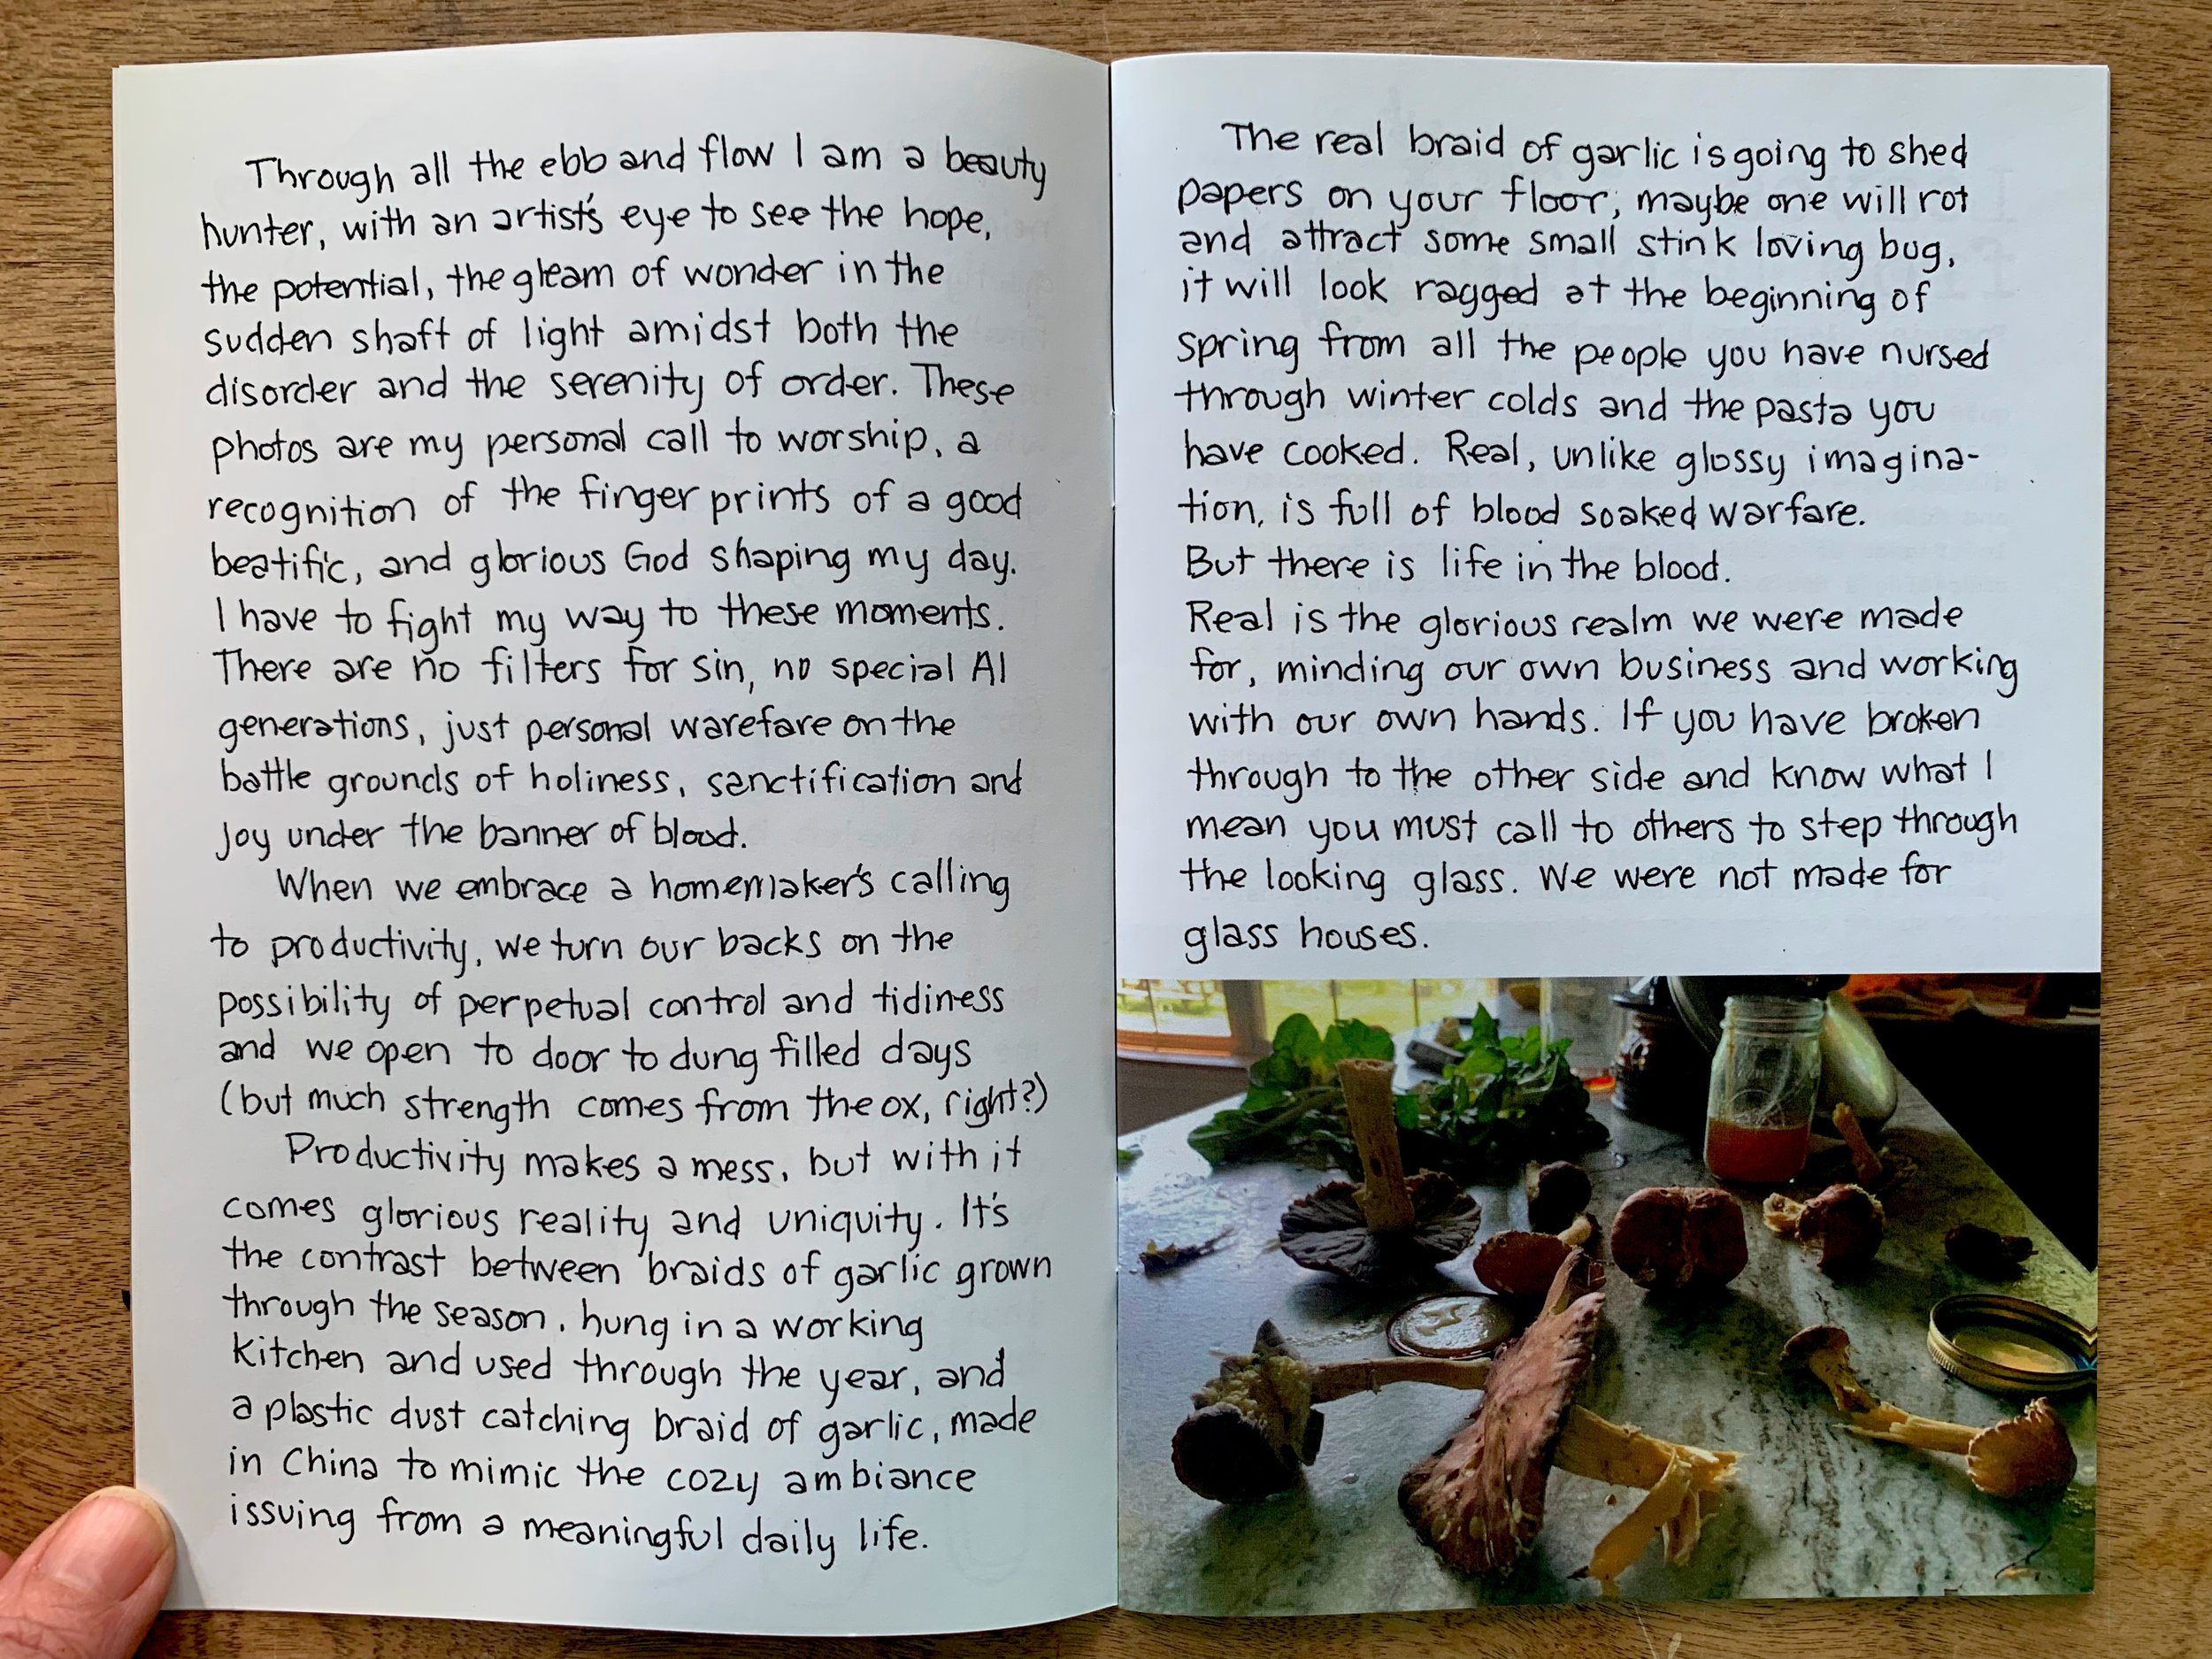 Through all the ebb and flow I am a beauty
hunter, with an artist's eye to see the hope,
the potential, the gleam of wonder in the
sudden shaft of light amidst both the
disorder and the serenity of order. These
photos are my personal call to worship, a
recognition of the finger prints of a good
beatific, and glorious God shaping my day.
I have to fight my way to these moments.
There are no filters for sin, no special AI
generations, just personal warefare on the
battle grounds of holiness, sanctification and
Joy under the banner of blood.
When we embrace a homemaker's calling
to productivity, we turn our backs on the
possibility of perpetual control and tidiness
and we open to door to dung filled days
(but much strength comes from the ox, right?)
Productivity makes a mess, but with it
comes glorious reality and uniquity. It's
the contrast between braids of garlic grown
through the season, hung in a working
kitchen and used through the year, and
a plastic dust catching braid of garlic, made
in China to mimic the cozy ambiance
issuing from a meaningful daily life.
The real braid of garlic is going to shed
papers on your floor, maybe one will rot
and attract some small stink loving bug,
it will look ragged at the beginning of
spring from all the people you have nursed
through winter colds and the pasta you
have cooked. Real, unlike glossy imagina-
tion, is full of blood soaked warfare.
But there is life in the blood.
Real is the glorious realm we were made
for, minding our own business and working
with our own hands. If you have broken
through to the other side and know what I
mean you must call to others to step through
the looking glass. We were not made for
glass houses.